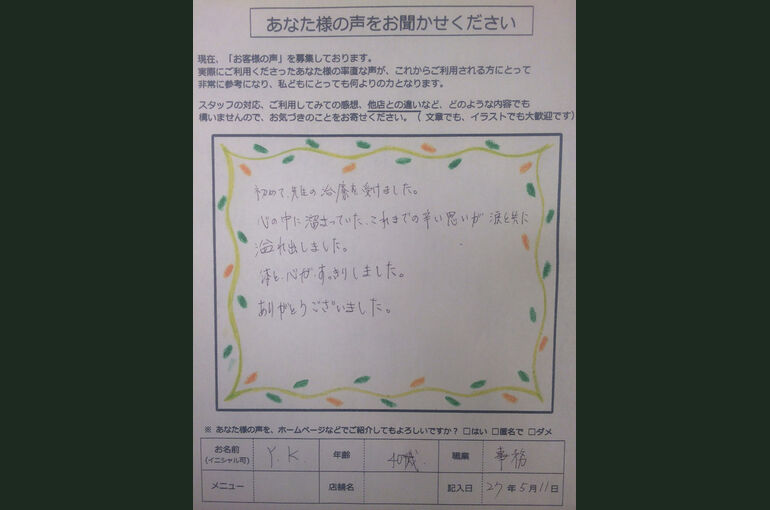 あなた様の声をお聞かせください
現在、「お客様の声」を募集しております。
実際にご利用くださったあなた様の率直な声が、これからご利用される方にとって
非常に参考になり、私どもにとっても何よりの力となります。
スタッフの対応、ご利用してみての感想、他店との違いなど、どのような内容でも
構いませんので、お気づきのことをお寄せください。（ 文章でも、イラストでも大歓迎です）
初めて、先生の治療を受けました。
心の中に溜まっていた、これまでの辛い思いが 涙と共に
溢れ出しました。
体と、心が、すっきりしました。
ありがとうございました。
※ あなた様の声を、ホームページなどでご紹介してもよろしいですか？ □はい □匿名で □ダメ
お名前 Y. K. 年齢 40歳. 職業 事務
(イニシャル可)
メニュー 店舗名 記入日 27年5月11日